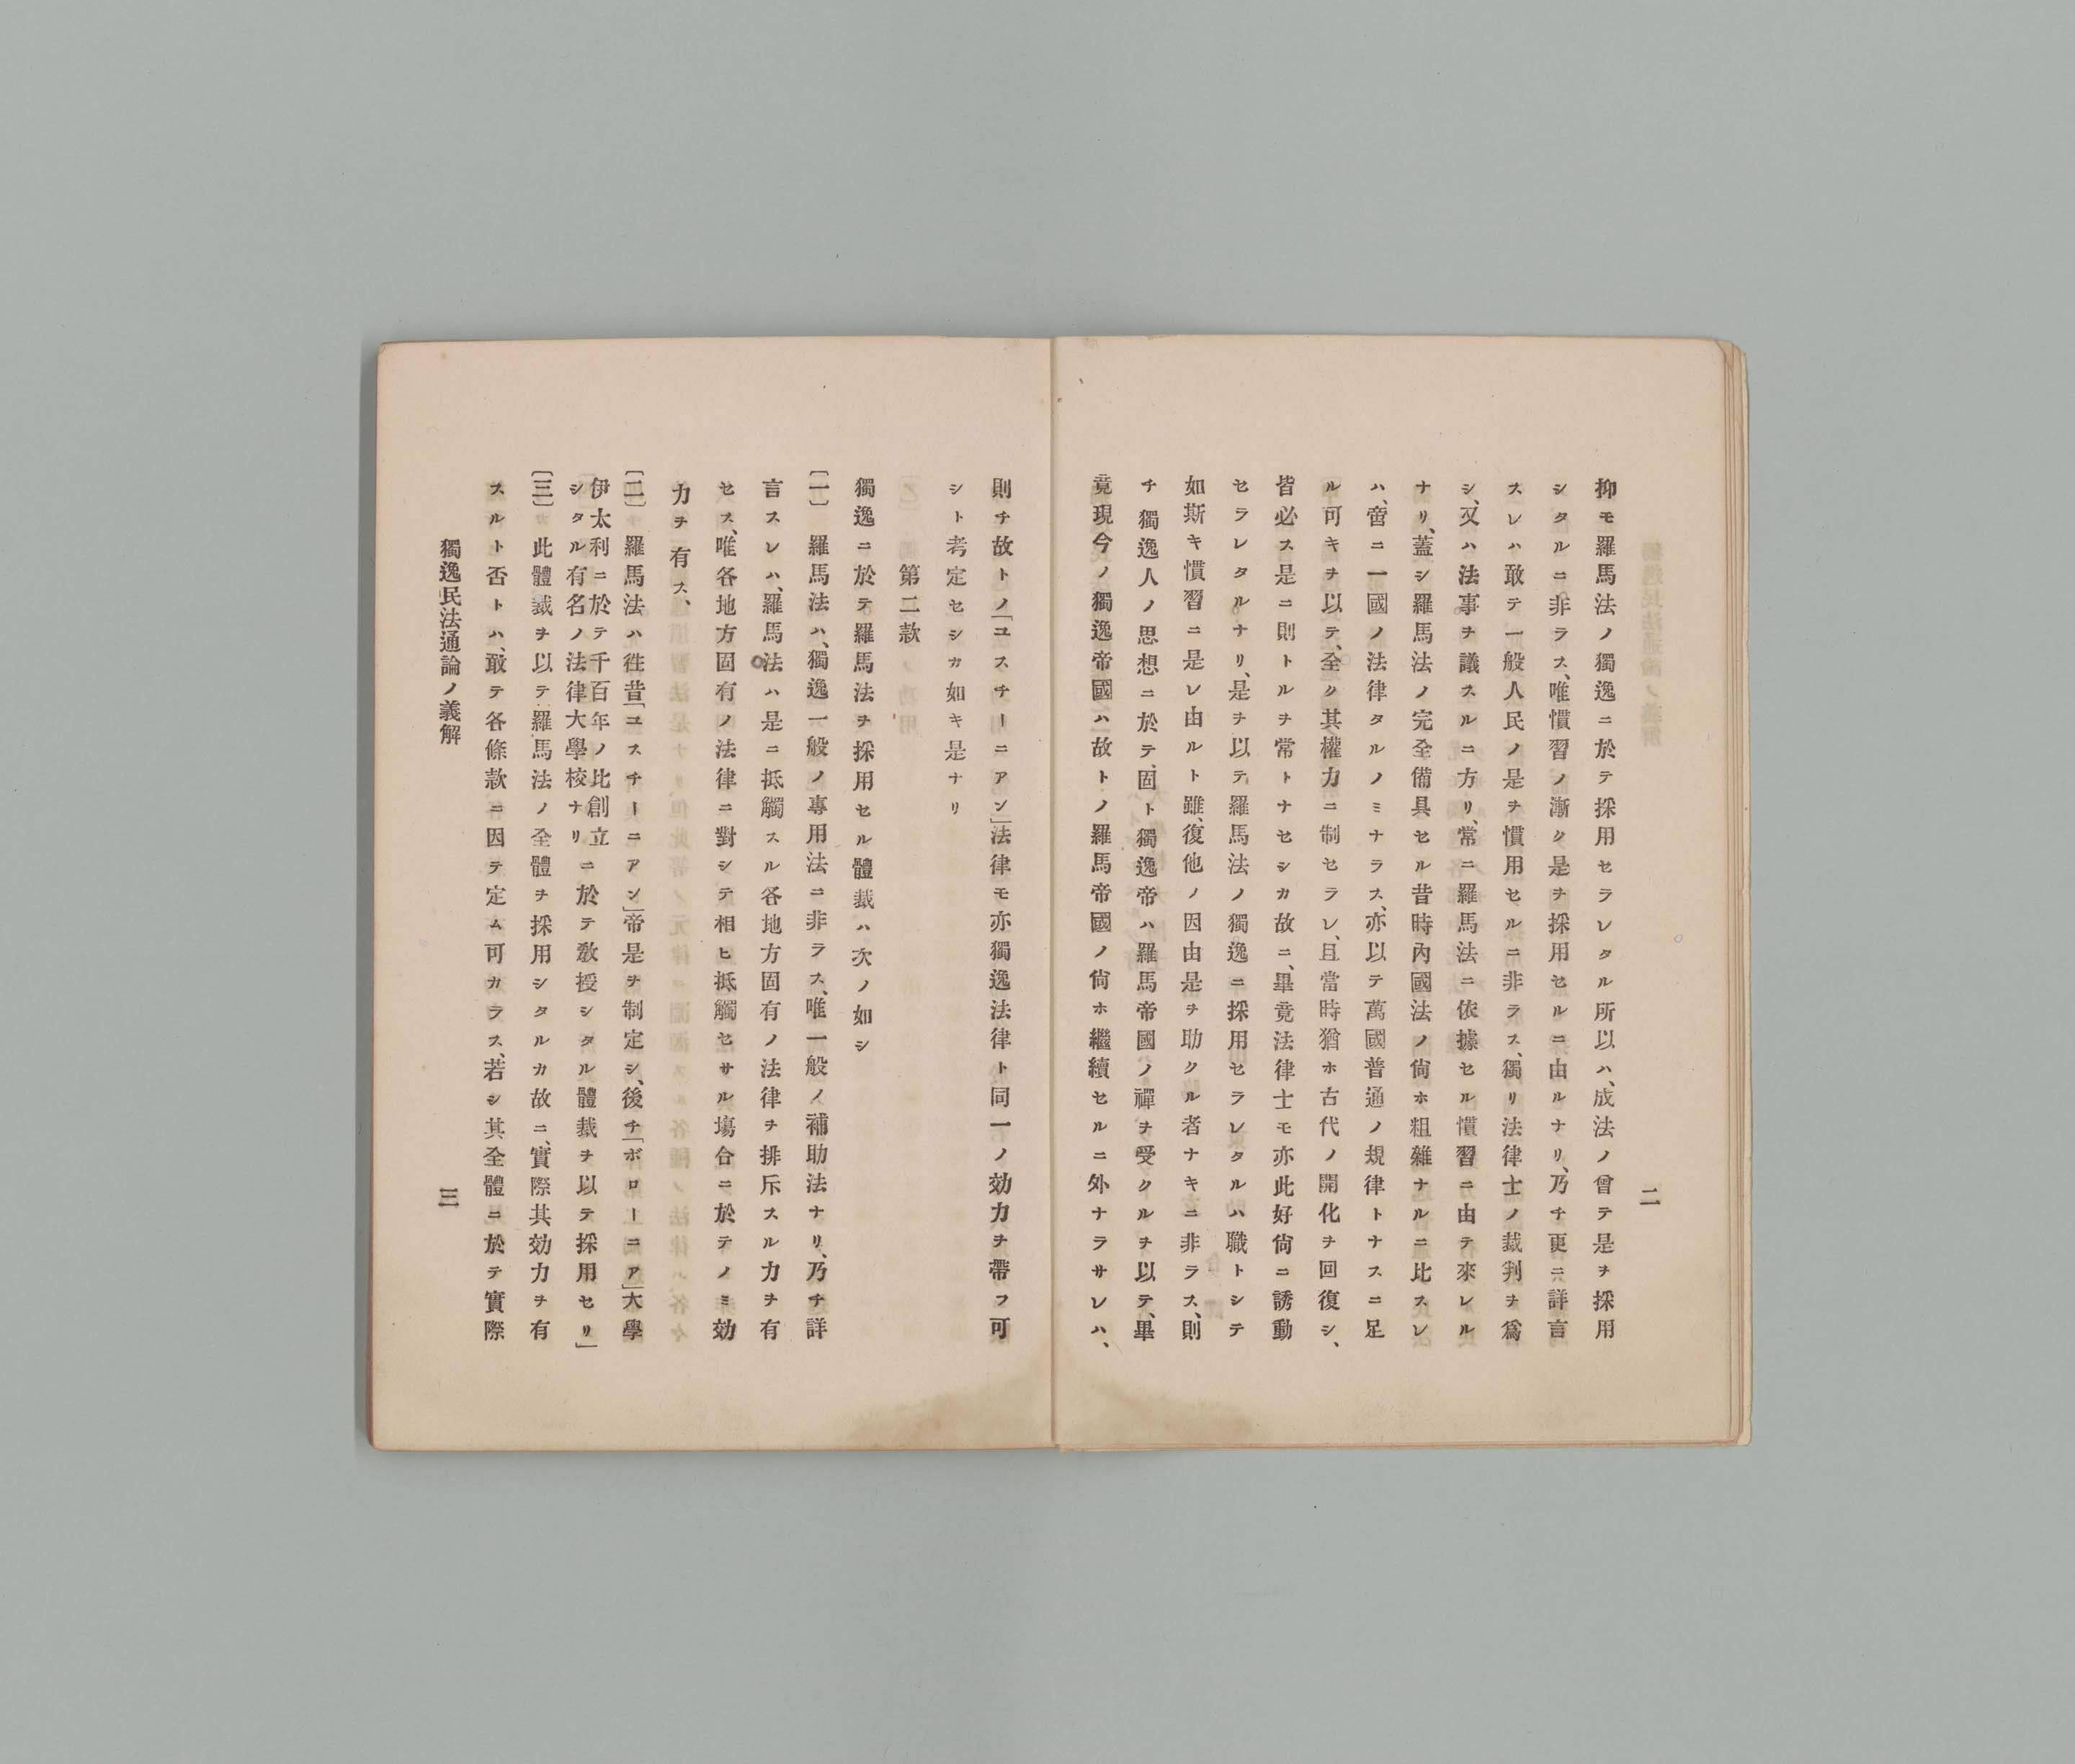 二
抑モ羅馬法ノ獨逸ニ於テ採用セラレタル所以ハ、成法ノ曾テ是ヲ採用
シタルニ非ラス、唯慣習ノ漸ク是ヲ採用セルニ由ルナリ、乃チ更ニ詳言
スレハ敢テ一般人民ノ是ヲ慣用セルニ非ラス、獨リ法律士ノ裁判ヲ爲
シ、又ハ法事ヲ議スルニ方リ、常ニ羅馬法ニ依據セル慣習ニ由テ來レル
ナリ、蓋シ羅馬法ノ完全備具セル昔時內國法ノ尙ホ粗雜ナルニ比スレ
ハ、啻ニ一國ノ法律タルノミナラス、亦以テ萬國普通ノ規律トナスニ足
ル可キヲ以テ、全ク其權力ニ制セラレ、且當時猶ホ古代ノ開化ヲ回復シ、
皆必ス是ニ則トルヲ常トナセシカ故ニ、畢竟法律士モ亦此好尙ニ誘動
セラレタルナリ、是ヲ以テ羅馬法ノ獨逸ニ採用セラレタルハ職トシテ
如斯キ慣習ニ是レ由ルト雖、復他ノ因由是ヲ助クル者ナキニ非ラス、則
チ獨逸人ノ思想ニ於テ、固ト獨逸帝ハ羅馬帝國ノ禪ヲ受クルヲ以テ、畢
竟現今ノ獨逸帝國ハ故トノ羅馬帝國ノ尙ホ繼續セルニ外ナラサレハ、
則チ故トノ「ユスチーニアン」法律モ亦獨逸法律ト同一ノ効力ヲ帶フ可
シト考定セシカ如キ是ナリ
第二款
獨逸ニ於テ羅馬法ヲ採用セル體裁ハ次ノ如シ
〔一〕羅馬法ハ、獨逸一般ノ專用法ニ非ラス、唯一般ノ補助法ナリ、乃チ詳
言スレハ、羅馬法ハ是ニ抵觸スル各地方固有ノ法律ヲ排斥スル力ヲ有
セス、唯各地方固有ノ法律ニ對シテ相ヒ抵觸セサル塲合ニ於テノミ効
力ヲ有ス、
〔二〕羅馬法ハ徃昔「ユスチーニアン」帝是ヲ制定シ、後チ「ボローニア」大學
伊太利ニ於テ千百年ノ比創立
シタル有名ノ法律大學校ナリ
ニ於テ敎授シタル體裁ヲ以テ採用セリ」
〔三〕此體裁ヲ以テ羅馬法ノ全體ヲ採用シタルカ故ニ、實際其効力ヲ有
スルト否トハ、敢テ各條款ニ因テ定ム可カラス、若シ其全體ニ於テ實際
獨逸民法通論ノ義解
三